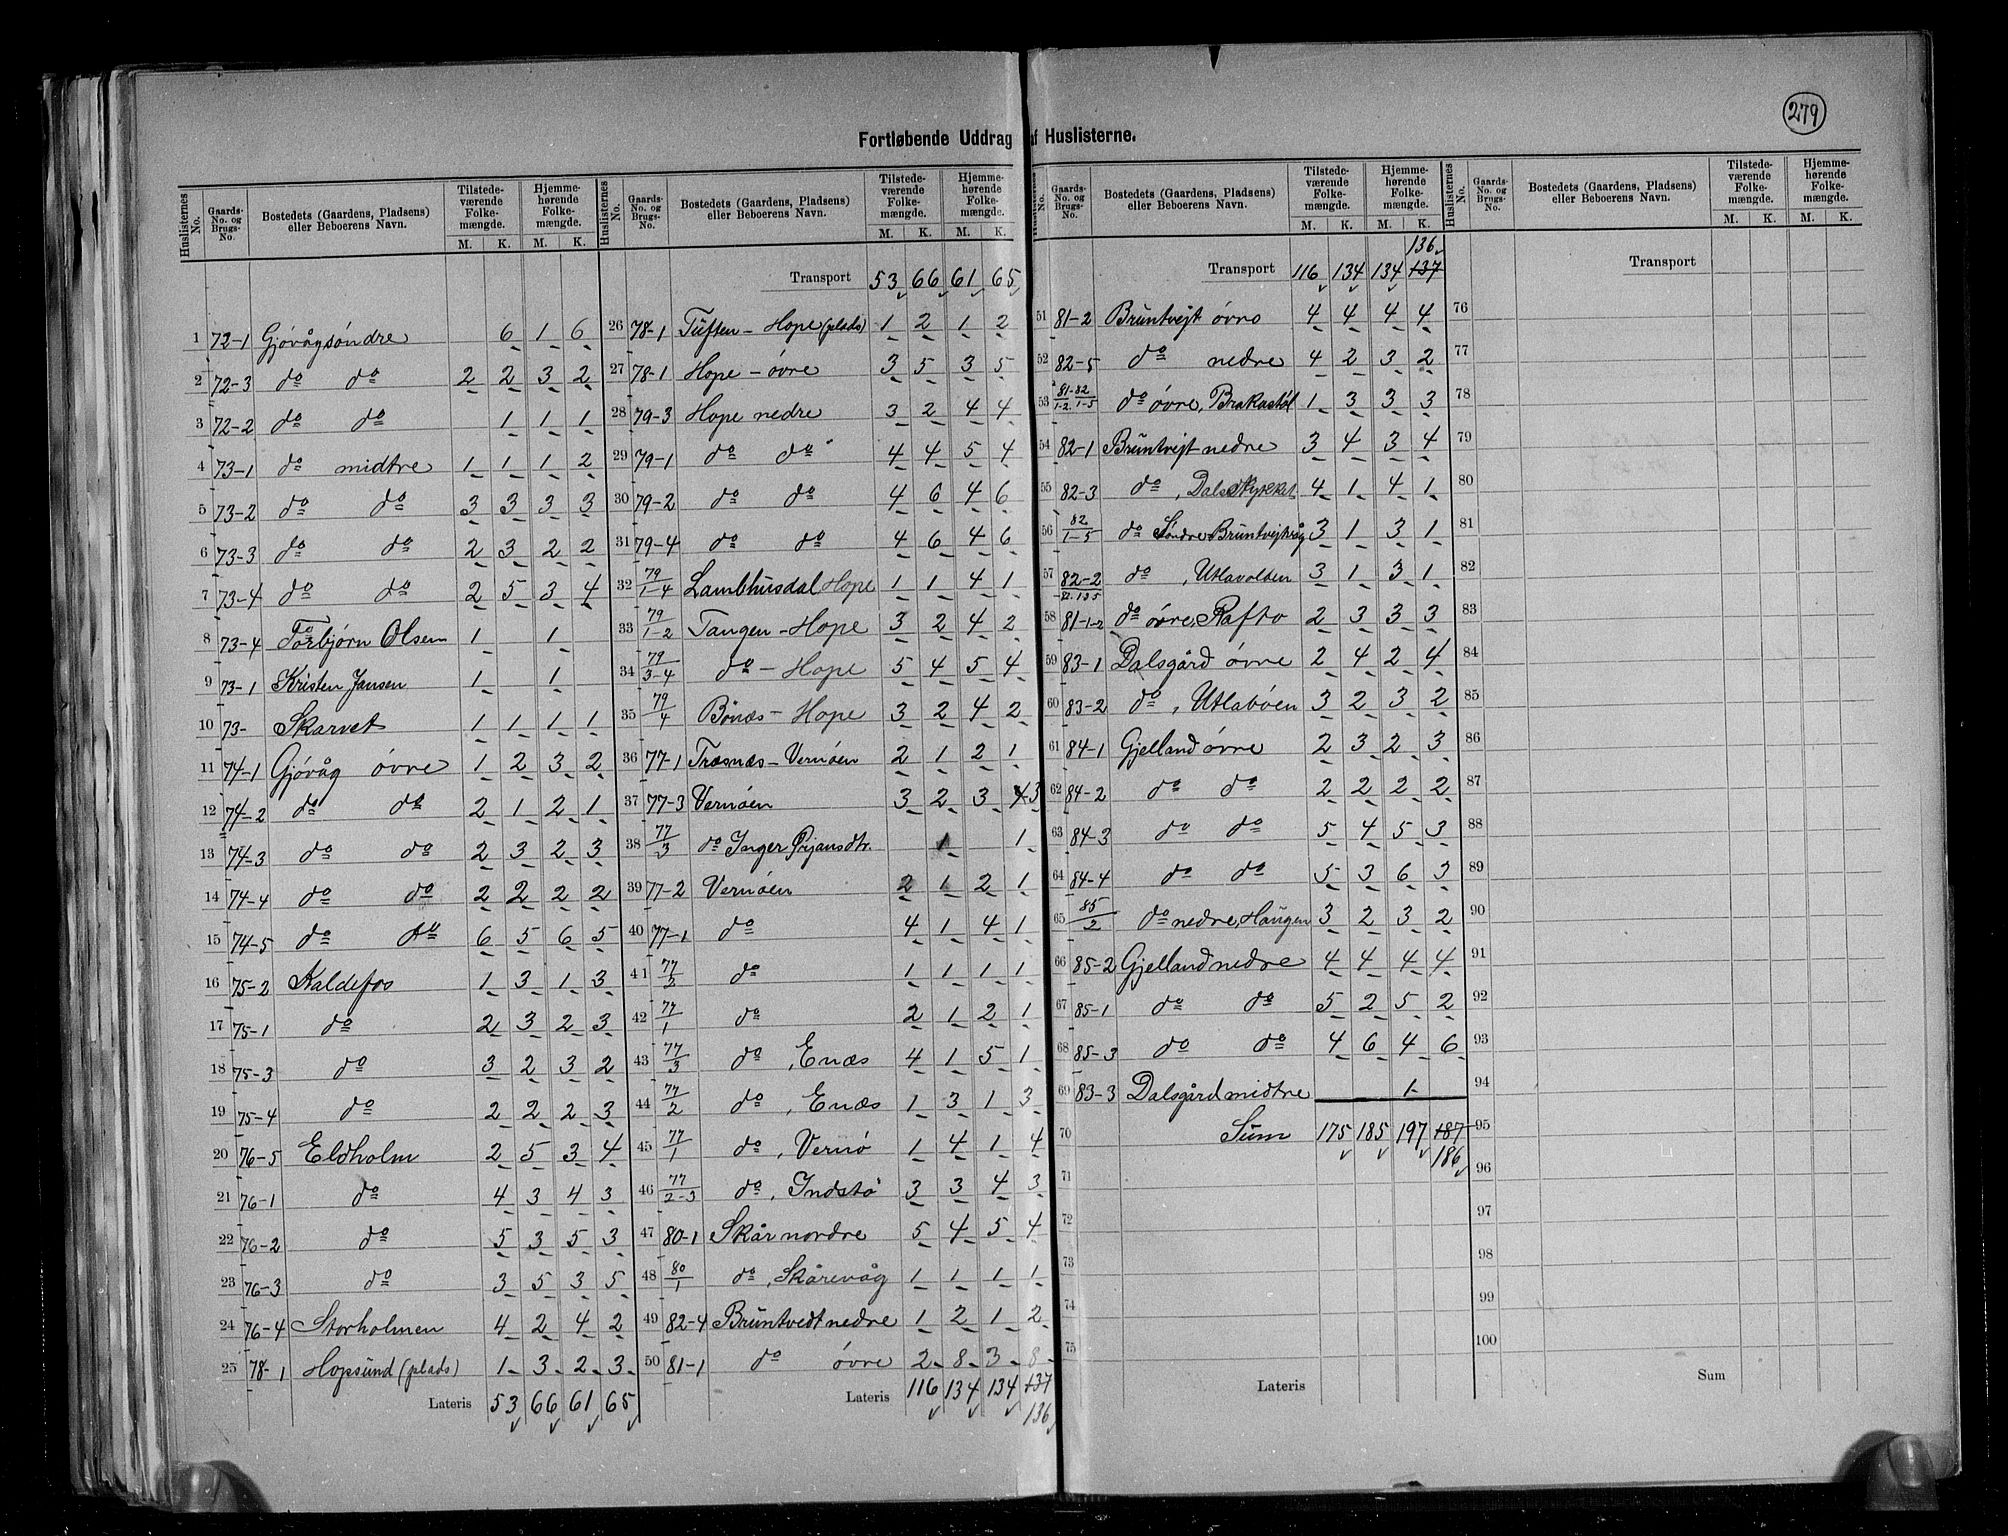 279
Fortløbende Uddrag af Huslisterne.
Huslisternes No. Gaards-No. og Brugs-No. Bostedets (Gaardens, Pladsens) eller Beboerens Navn. Tilstedeværende Folkemængde. M. K. Hjemmehørende Folkemængde. M. K.
1 72-1 Gjøvåg søndre 6 1 6
2 72-3 do do 2 2 3 2
3 72-2 do do 1 1 1
4 73-1 do midtre 1 1 1 2
5 73-2 do do 3 3 3 3
6 73-3 do do 2 3 2 2
7 73-4 do do 2 5 3 4
8 73-4 Torbjørn Olsen 1 1
9 73-1 Kristen Jansen 1 1
10 73- Skarvet 1 1 1 1
11 74-1 Gjøvåg øvre 1 2 3 2
12 74-2 do do 2 1 2 1
13 74-3 do do 2 3 2 3
14 74-4 do do 2 2 2 2
15 74-5 do do 6 5 6 5
16 75-2 Kaldefos 1 3 1 3
17 75-1 do 2 3 2 3
18 75-3 do 3 2 3 2
19 75-4 do 2 2 2 3
20 76-5 Eldholm 2 5 3 4
21 76-1 do 4 3 4 3
22 76-2 do 5 3 5 3
23 76-3 do 3 5 3 5
24 76-4 Storholmen 4 2 4 2
25 78-1 Hopsund (plads) 1 3 2 3
Lateris 53 66 61 65
Huslisternes No. Gaards-No. og Brugs-No. Bostedets (Gaardens, Pladsens) eller Beboerens Navn. Tilstedeværende Folkemængde. M. K. Hjemmehørende Folkemængde. M. K.
Transport 53 66 61 65
26 78-1 Tuften - Hope (plads) 1 2 1 2
27 78-1 Hope - øvre 3 5 3 5
28 79-3 Hope nedre 3 2 4 4
29 79-1 do do 4 4 5 4
30 79-2 do do 4 6 4 6
31 79-4 do do 4 6 4 6
32 79/1-4 Lambhusdal Hope 1 1 4 1
33 79/1-2 Tangen - Hope 3 2 4 2
34 79/3-4 do - Hope 5 4 5 4
35 79/4 Bønæs - Hope 3 2 4 2
36 77-1 Træsnæs - Vernøen 2 1 2 1
37 77-3 Vernøen 3 2 3 4 3
38 77/3 do Inger Ørjansdtr. 1 1
39 77-2 Vernøen 2 1 2 1
40 77-1 do 4 1 4 1
41 77/2 do 1 1 1 1
42 77/1 do 2 1 2 1
43 77/3 do, Enæs 4 1 5 1
44 77/2 do, Enæs 1 3 1 3
45 77/1 do, Vernø 1 4 1 4
46 77/2-3 do, Indstø 3 3 4 3
47 80-1 Skår nordre 5 4 5 4
48 80/1 do, Skårevåg 1 1 1 1
49 82-4 Bruntvedt nedre 1 2 1 2
50 81-1 do øvre 2 8 3 8
Lateris 116 134 134 137
136
Huslisternes No. Gaards-No. og Brugs-No. Bostedets (Gaardens, Pladsens) eller Beboerens Navn. Tilstedeværende Folkemængde. M. K. Hjemmehørende Folkemængde. M. K.
136
Transport 116 134 134 137
51 81-2 Bruntvejt øvre 4 4 4 4
52 82-5 do nedre 4 2 3 2
53 81-82/1-2. 1-5 do øvre, Brakastøl 1 3 3 3
54 82-1 Bruntvejt nedre 3 4 3 4
55 82-3 do, Dalsstykket 4 1 4 1
56 82/1-5 do Søndre Bruntvejtvåg 3 1 3 1
57 82-2 do, Utlavolden 3 1 3 1
58 81-1-2 do øvre, Rafto 2 3 3 3
59 83-1 Dalsgård øvre 2 4 2 4
60 83-2 do, Utlabøen 3 2 3 2
61 84-1 Gjelland øvre 2 3 2 3
62 84-2 do do 2 2 2 2
63 84-3 do do 5 4 5 3
64 84-4 do do 5 3 6 3
65 85/2 do nedre, Haugen 3 2 3 2
66 85-2 Gjelland nedre 4 4 4 4
67 85-1 do do 5 2 5 2
68 85-3 do do 4 6 4 6
69 83-3 Dalsgård midtre 1
70 Sum 175 185 197 187
186
71
72
73
74
75
Lateris
Huslisternes No. Gaards-No. og Brugs-No. Bostedets (Gaardens, Pladsens) eller Beboerens Navn. Tilstedeværende Folkemængde. M. K. Hjemmehørende Folkemængde. M. K.
Transport
76
77
78
79
80
81
82
83
84
85
86
87
88
89
90
91
92
93
94
95
96
97
98
99
100
Sum